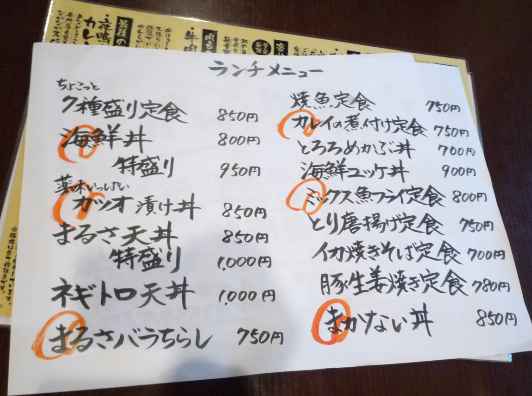 ランチメニュー
ちょこっと
7種盛り定食 850円
海鮮丼 800円
特盛り 950円
薬味いっぱい
カツオ漬け丼 850円
まるさ天丼 850円
特盛り 1,000円
ネギトロ天丼 1,000円
まるさバラちらし 750円
焼魚定食 750円
カレイの煮付け定食 750円
とろろめかぶ丼 700円
海鮮ユッケ丼 900円
ミックス魚フライ定食 800円
とり唐揚げ定食 750円
イカ焼きそば定食 700円
豚生姜焼き定食 780円
まかない丼 850円